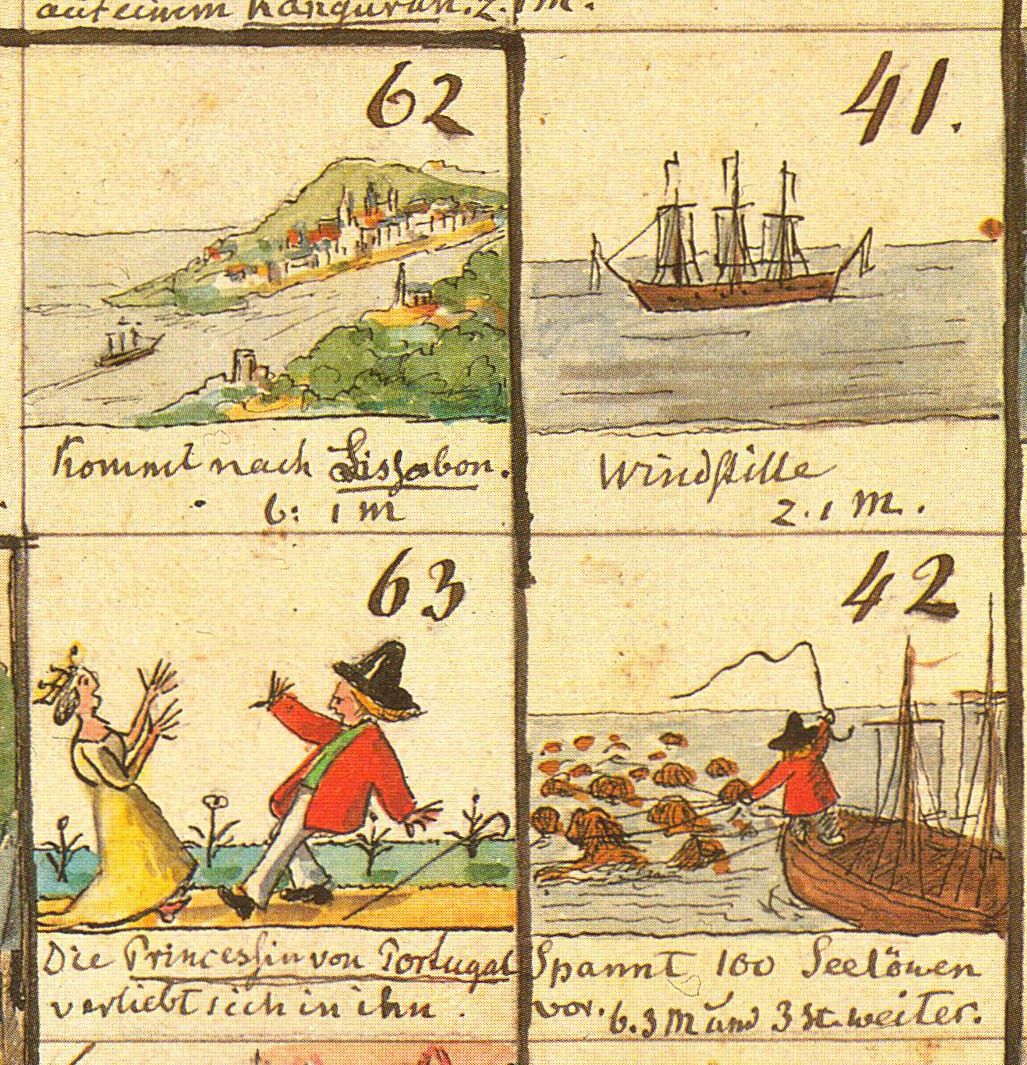 auf einem Känguruh. 2. 1 m.
62
Kommt nach Lissabon.
6: 1 m
41.
Windstille
2. 1 M.
63
Die Princessin von Portugal
verliebt sich in ihn.
42
Spannt 100 Seelöwen
vor. 6. 3 M und 3 St. weiter.